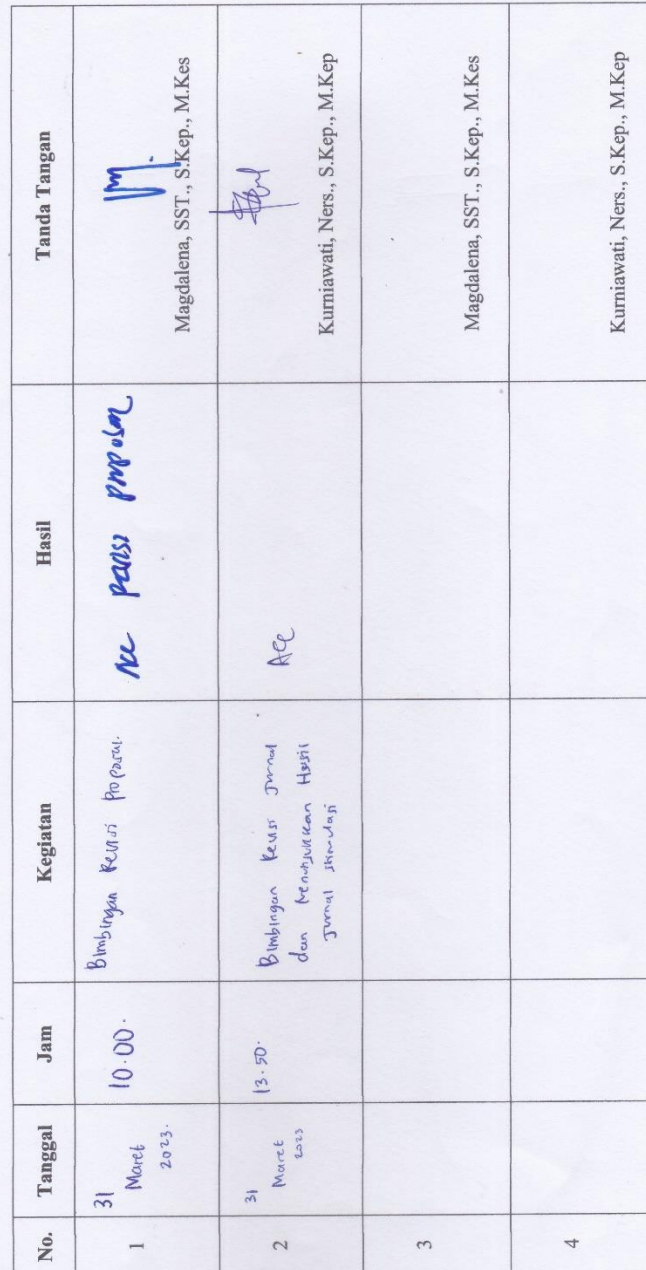 No.
Tanggal
Jam
Kegiatan
Hasil
Tanda Tangan
1
31
Maret
2023.
10.00.
Bimbingan Revisi Proposal.
Acc
Magdalena, SST., S.Kep., M.Kes
2
31
Maret
2023
13.50.
Bimbingan Revisi Jurnal
dan Menunjukkan Hasil
Jurnal
Acc
Kurniawati, Ners., S.Kep., M.Kep
3
Magdalena, SST., S.Kep., M.Kes
4
Kurniawati, Ners., S.Kep., M.Kep